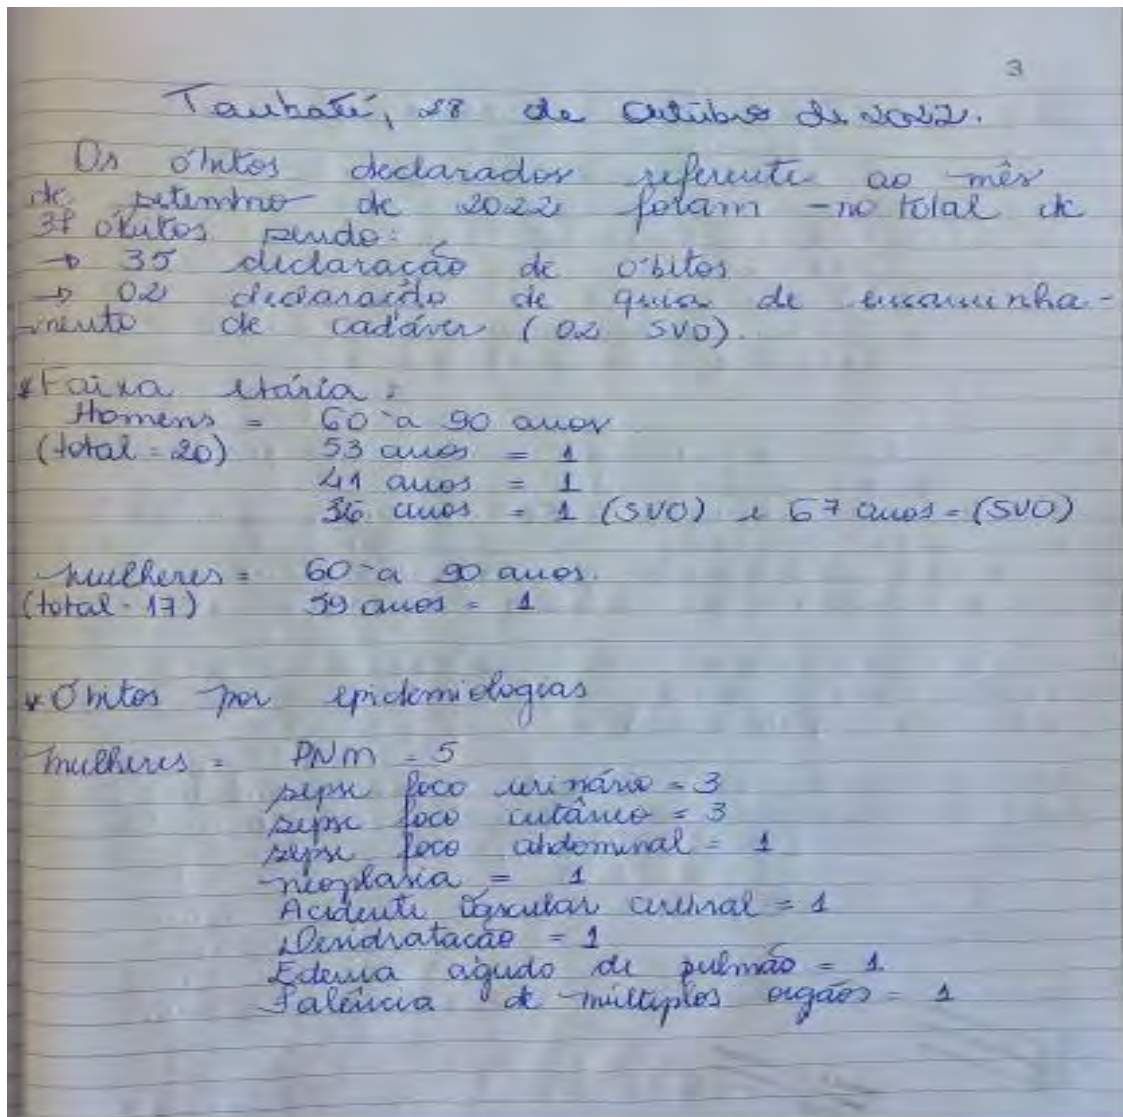 3
Taubaté, 28 de Outubro de 2022.
Os óbitos declarados referente ao mês
de setembro de 2022 foram no total de
37 óbitos sendo:
→ 35 declaração de óbitos
→ 02 declaração de guia de encaminha-
mento de cadáver (02 SVO).
*Faixa etária:
Homens = 60 a 90 anos
(total = 20) 53 anos = 1
41 anos = 1
36 anos = 1 (SVO) e 67 anos = (SVO)
mulheres = 60 a 90 anos.
(total - 17) 59 anos = 1
*Óbitos por epidemiologias
mulheres = PNM = 5
sepse foco urinário = 3
sepse foco cutâneo = 3
sepse foco abdominal = 1
neoplasia = 1
Acidente Vascular cerebral = 1
Desidratação = 1
Edema agudo de pulmão = 1
Falência de múltiplos orgãos = 1